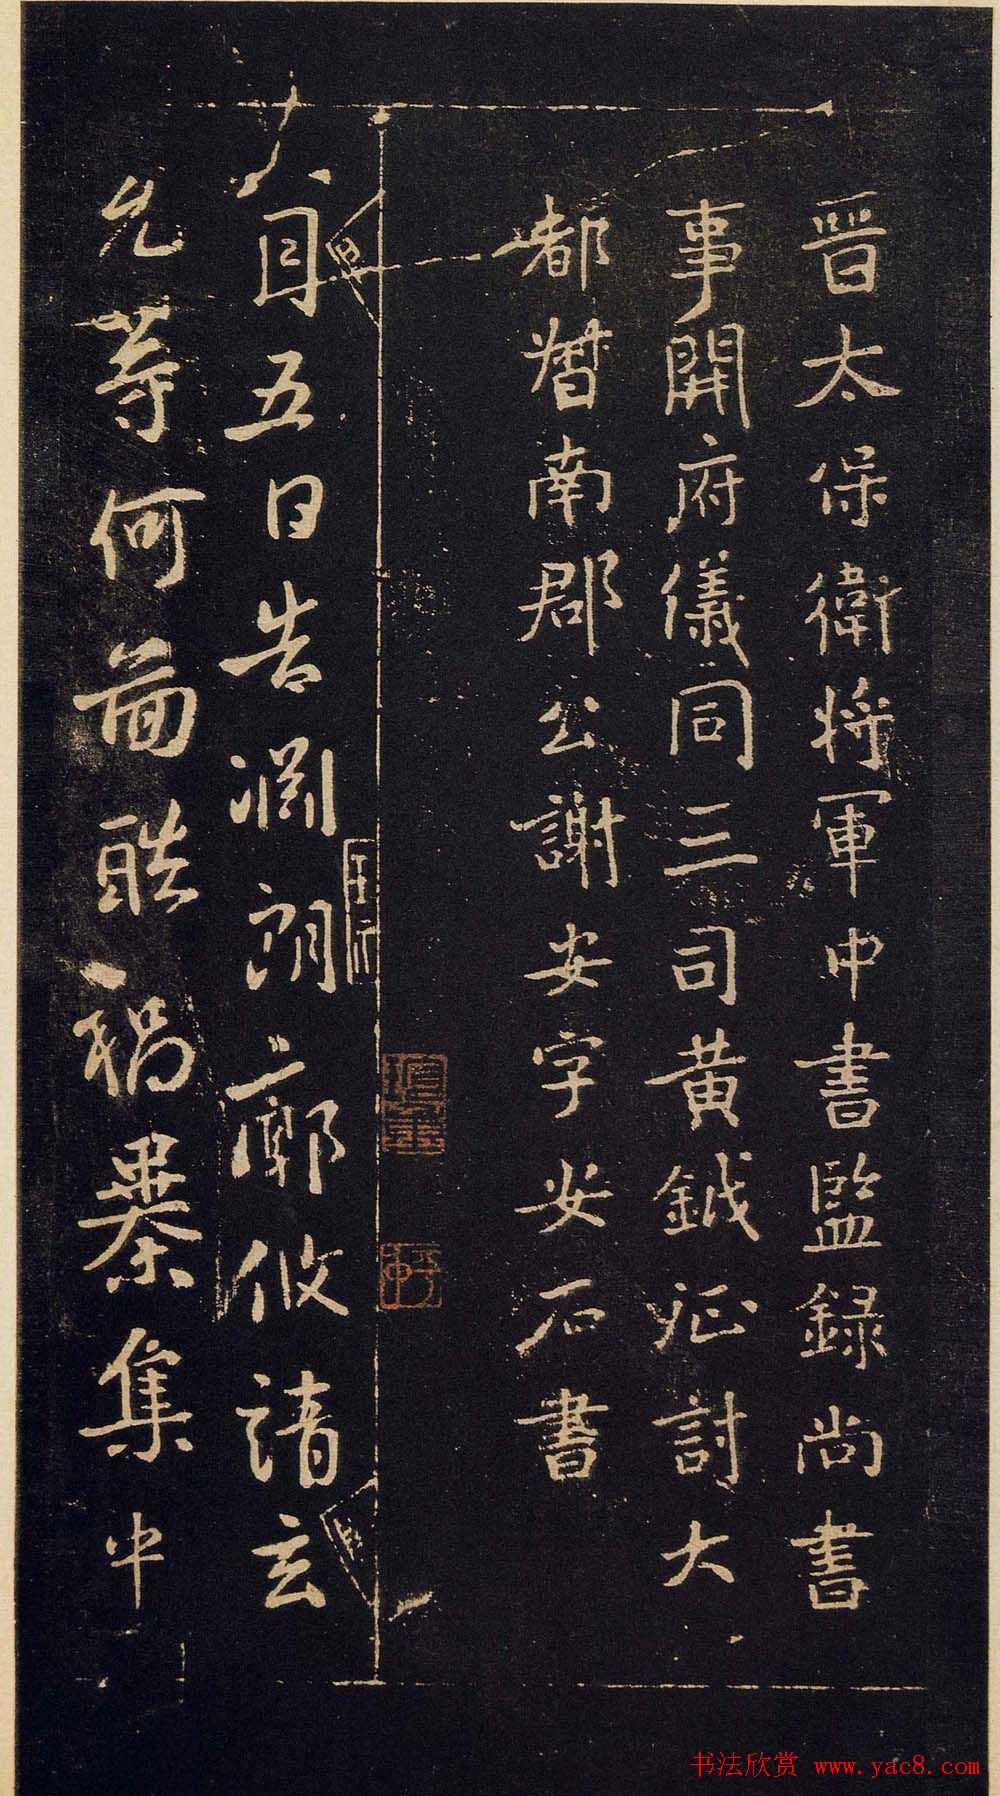 晉太保衛將軍中書監錄尚書
事開府儀同三司黃鉞征討大
都督南郡公謝安字安石書
八月五日告淵朗廓攸靖玄
允等何圖酷禍暴集中
书法欣赏 www.yac8.com